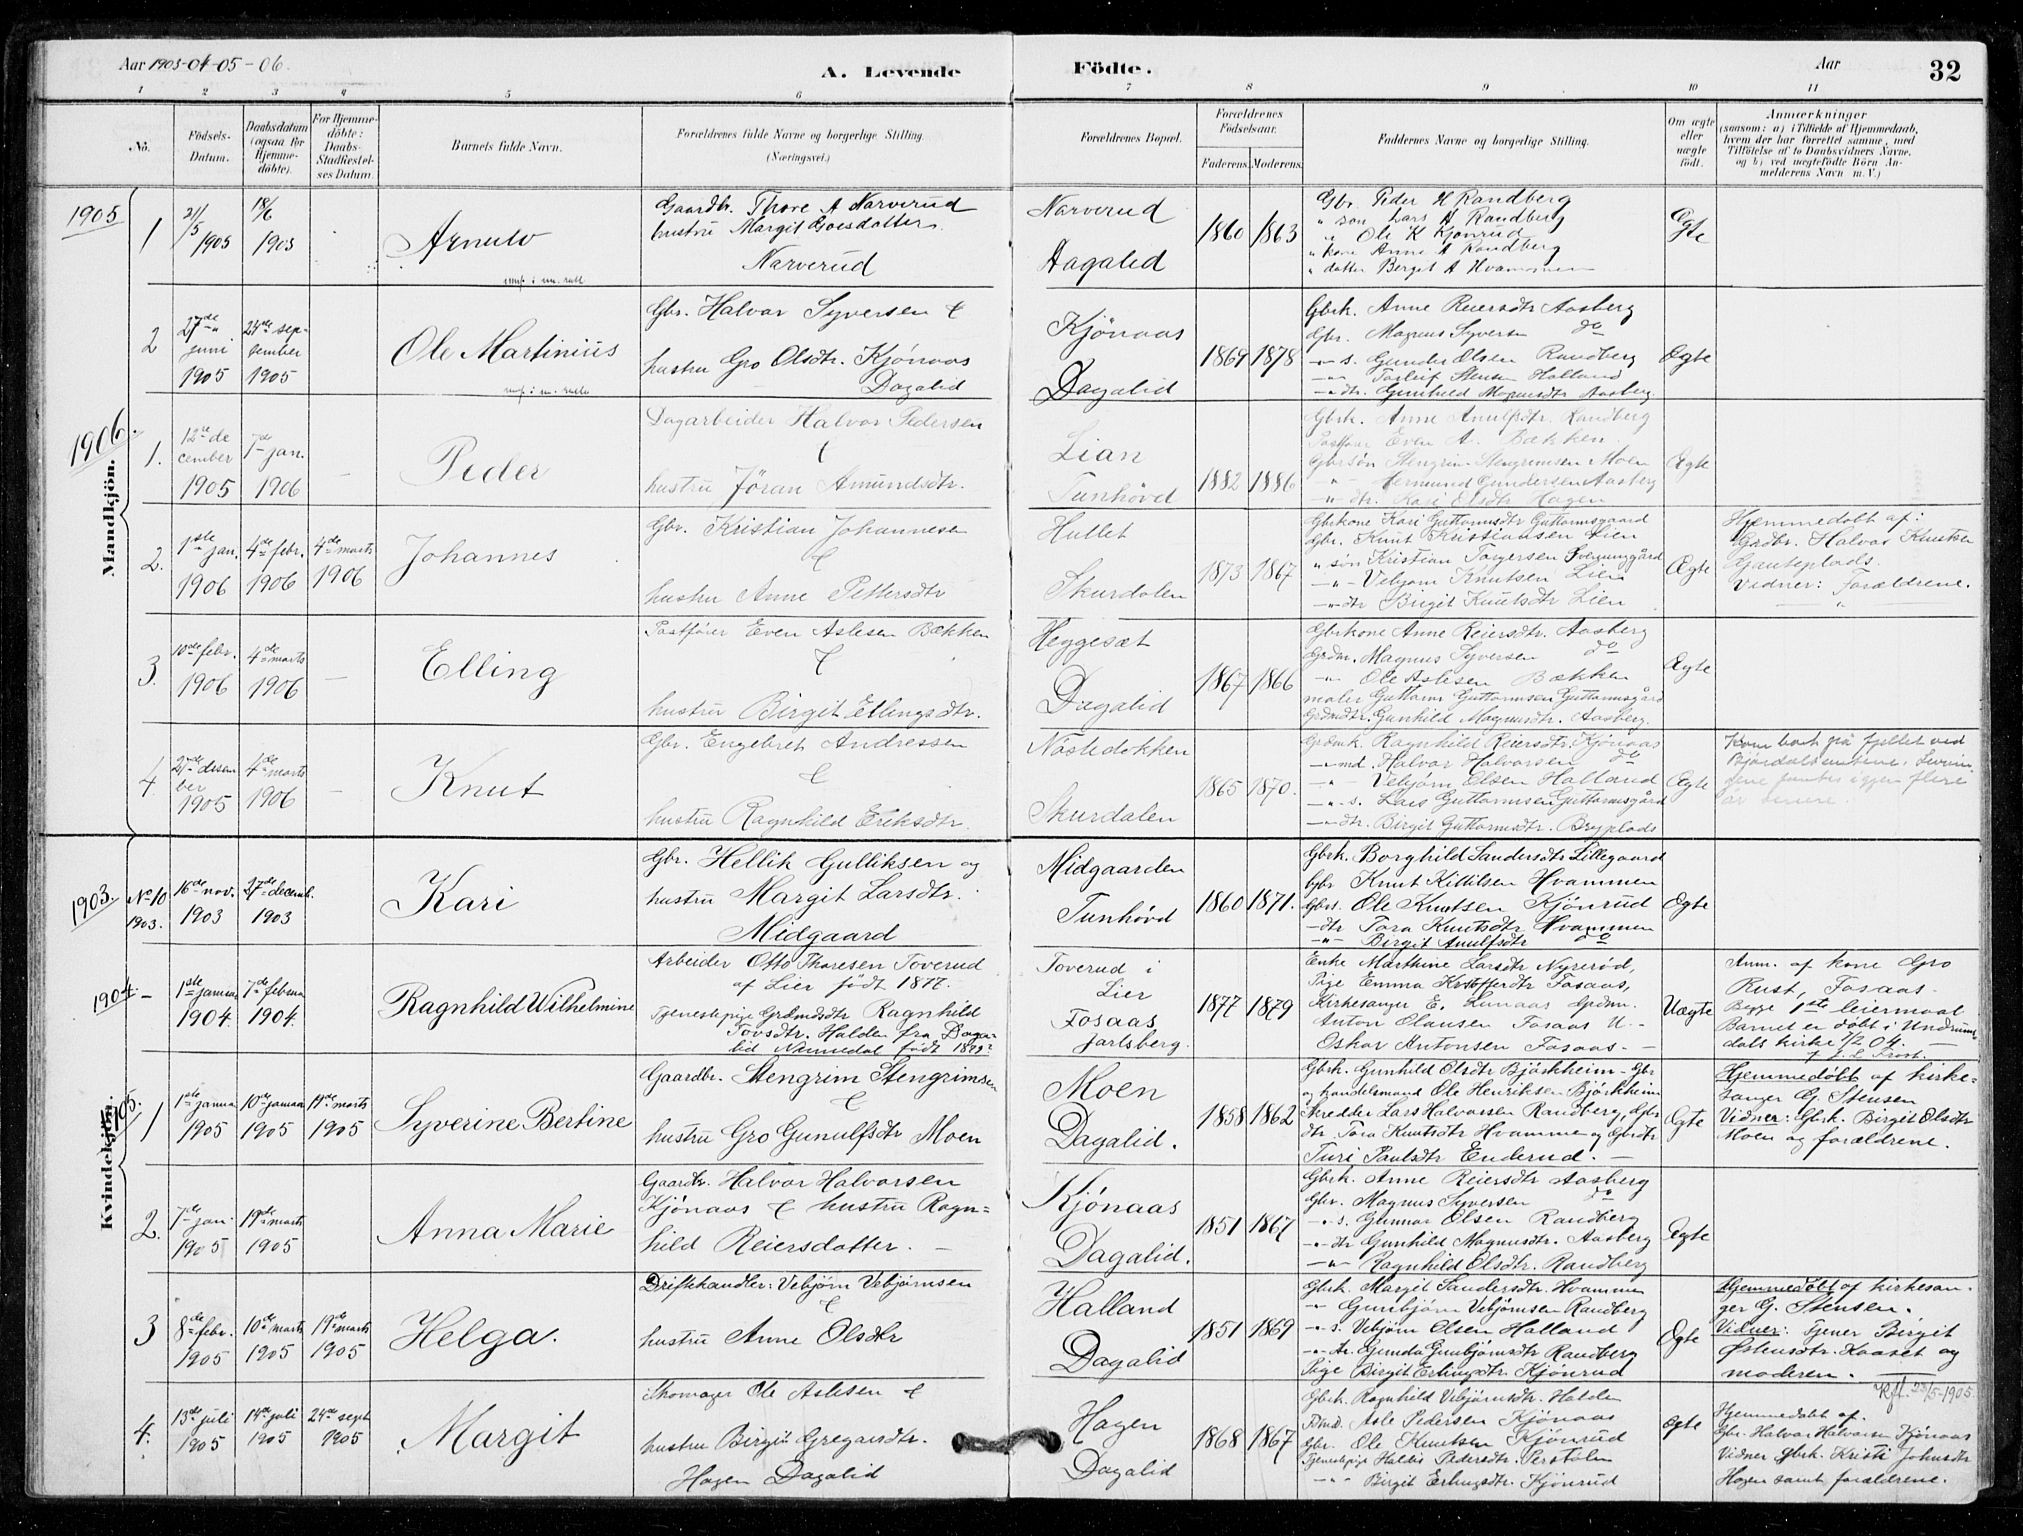 Aar 1903-04-05-06.
A. Levende
Födte.
Aar
32
1 2 3 4 5 6 7 8 9 10 11
No.
Födsels-Datum.
Daabsdatum (ogsaa for Hjemme-döbte).
For Hjemme-döbte: Daabs-Stadfæstel-ses Datum.
Barnets fulde Navn.
Forældrenes fulde Navne og borgerlige Stilling.
(Næringsvei.)
Forældrenes Bopæl.
Forældrenes Födselsaar.
Faderens. Moderens.
Faddernes Navne og borgerlige Stilling.
Om ægte eller uægte födt.
Anmærkninger
(saasom: a) i Tilfælde af Hjemmedaab,
hvem der har forrettet samme, med
Tilföielse af to Daabsvidners Navne,
og b) ved uægtefödte Börn An-
melderens Navn m. V.)
Mandkjön.
1905
1
21/5 1905
18/6 1905
Arnulv
Gaardbr. Thore A Narverud
hustru Margit Goesdatter
Narverud
Narverud
Dagalid
1860 1863
Gbr. Peder H Randberg
" søn Lars H Randberg
" Ole K Kjønrud
" kone Anne A Randberg
" datter Berget A Hvammen
Egte
2
27de juni 1905
24de september 1905
Ole Martinius
Gbr. Halvor Syversen &
hustru Gro Olsdtr. Kjønaas
Dagalid
Kjønaas
Dagalid
1869 1878
Gbrk. Anne Reiersdtr Aasberg
Gbr. Magnus Syversen do
-"- s. Gunder Olsen Randberg
-"- Torleif Stensen Halland
-"- dtr. Gunhild Magnusdtr Aasberg
Ægte
1906.
1.
12te december 1905
7de jan. 1906
Peder
Dagarbeider Halvor Pedersen
&
hustru Jøran Amundsdtr.
Lian
Tunhövd
1882 1886
Gbrk. Anne Arnulfsdtr. Randberg
Postfører Even A. Bækken.
Gbrsøn Stengrim Stengrimsen Moen
-"- Hermund Gundersen Aasberg
-"- dtr. Kari Elsdtr Hagen
Ægte
2.
1ste jan. 1906
4de febr. 1906
4de marts 1906
Johannes
Gbr. Kristian Johannesen
&
hustru Anne Pettersdtr
Hullet
Skurdalen
1873 1867
Gbrkone Kari Guttormsdtr Guttormsgaard
Gbr. Knut Kristiansen Lien
" søn Kristian Torgersen Svenunggård
-"- Vebjørn Knutsen Lien
-"- dtr Birgit Knutsdtr Lien
Ægte
Hjemmedøbt af:
Gaardbr. Halvor Knutsen
Gauteplads.
Vidner: forældrene.
3.
10de febr. 1906
4de marts 1906
Elling
Postfører Even Aslesen Bækken
&
hustru Birgit Ellingsdtr.
Heggesæt
Dagalid
1867 1866
Gbrkone Anne Reiersdtr. Aasberg
Grdm. Magnus Syversen do
-"- Ole Aslesen Bækken
maler Guttorm Guttormsen Guttormsgård
Grdmdtr. Gunhild Magnusdtr. Aasberg.
Ægte
4.
27de desember 1905
4de marts 1906
Knut
Gbr. Engebret Andressen
&
hustru Ragnhild Eriksdtr.
Nöstedokken
Skurdalen
1865 1870.
Grdmk. Ragnhild Reiersdtr. Kjønaas
-"- md. Halvor Halvorsen do
-"- Vebjørn Olsen Halland
-"- s. Lars Guttormsen Guttormsgård
-"- dtr. Birgit Guttormsdtr. Bryplads
Ægte
Kom bort på fjellet ved
igjen flere
år senere.
Kvindekjön.
1903.
No 10 1903.
16de nov. 1903
27de decemb. 1903
Kari
Gbr. Hellik Gulliksen og
hustru Margit Larsdtr.
Midgaard
Midgaarden
Tunhövd
1860 1871.
Gbrk. Borghild Sandersdtr Lillegaard
Gbr Knut Kittilsen Hvammen
Gbrs. Ole Knutsen Kjönrud
-dtr Tora Knutsdtr Hvammen
-"- Birgit Arnulfsdtr do
Ægte
1904. -
1ste januar 1904.
7de februar 1904.
Ragnhild Wilhelmine
Arbeider Otto Thoresen Toverud
af Lier født 1877.
Tjenestepige Grdmdsdtr Ragnhild
Tovsdtr. Halden fra Daga-
lid Nummedal født 1879?
Toverud i
Lier
Fosaas
Jarlsberg.
1877 1879
Enke Marthine Larsdtr Nyrerød,
Pige Emma Kristofferdtr Fosaas,
Kirkesanger E. Lunaas Grdm.
Anton Olausen Fosaas U. -
Oskar Antonsen Fosaas. -
Uægte
Anm. af kone Gro
Rust, Fosaas.
Begge 1ste leiermaal
Barnet er døbt i Undrums-
dals kirke 7/2 04.
1905.
1
1ste januar 1905
10de januar 1905
19de marts 1905
Syverine Bertine
Gaardbr. Stengrim Stengrimsen
&
hustru Gro Gunulfsdtr Moen
Moen
Dagalid.
1858 1862
Gbrk. Gunhild Olsdtr Björkheim - Gbr
og handelsmand Ole Henriksen Björkheim
Skredder Lars Halvorsen Randberg, Gbr
dtr Tora Knutsdtr Hvamme og Gbrdtr
Turi Paulsdtr Enderud. -
Egte
Hjemmedöbt af kirke-
sanger G. Stensen
Vidner: Gbrk. Birgit Olsdtr
Moen og forældrene.
2.
7de jan. 1905
19de marts 1905
Anna Marie
Gaardbr. Halvor Halvorsen
Kjønaas & hustru Ragn=
hild Reiersdatter. -
Kjønaas
Dagalid.
1851 1867
Gbrk. Anne Reiersdtr Aasberg
Gbr. Magnus Syversen do
-"- s. Gunnar Olsen Randberg
-"- dtr Gunhild Magnusdtr. Aasberg
-"- Ragnhild Olsdtr. Randberg
Ægte
3
8de febr. 1905
10de marts 1905
19de marts 1905
Helga.
Driftehandler: Vebjørn Vebjørnsen
&
hustru Anne Olsdtr
Halland
Dagalid
1851 1869
Gbrk. Margit Sandersdtr. Hvammen
-"- Gunbjørn Vebjørnsen Randberg
-"- s. Vebjørn Olsen Halland
-"- dtr. Gunda Gunbjørnsdtr Randberg
Pige Birgit Erlingsdtr. Kjönrud
Egte
Hjemmedöbt af kirkesan-
ger G. Stensen.
Vidner: Tjener Birgit
Østensdtr. Kaaset og
moderen.
Kft. 25/5-1905
4.
13de juli 1905
14de juli 1905
24de sept 1905
Margit
Skomager Ole Aslesen &
hustru Birgit Gregardtr.
Hagen Dagalid
Hagen
Dagalid
1868 1867
Gbrk. Ragnhild Vebjørnsdtr. Halden
Asle Pedersen Kjönaas
Gbr. Ole Knutsen Kjönrud
Tjenestepige Halbis Pedersdtr. Perstølen
-"- Birgit Erlingsdtr. Kjönrud
Ægte
Hjemmedöbt af.
Gbr. Halvor Halvorsen Kjönaas
Vidner Gbrk. Kristi Johnsdtr
Hagen samt forældrene.